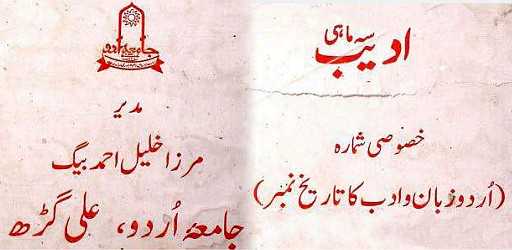 سہ ماہی
ادیب
خصوصی شمارہ
(اُردو زبان و ادب کا تاریخ نمبر)
جامعہ اردو
مدیر
مرزا خلیل احمد بیگ
جامعۂ اُردو، علی گڑھ